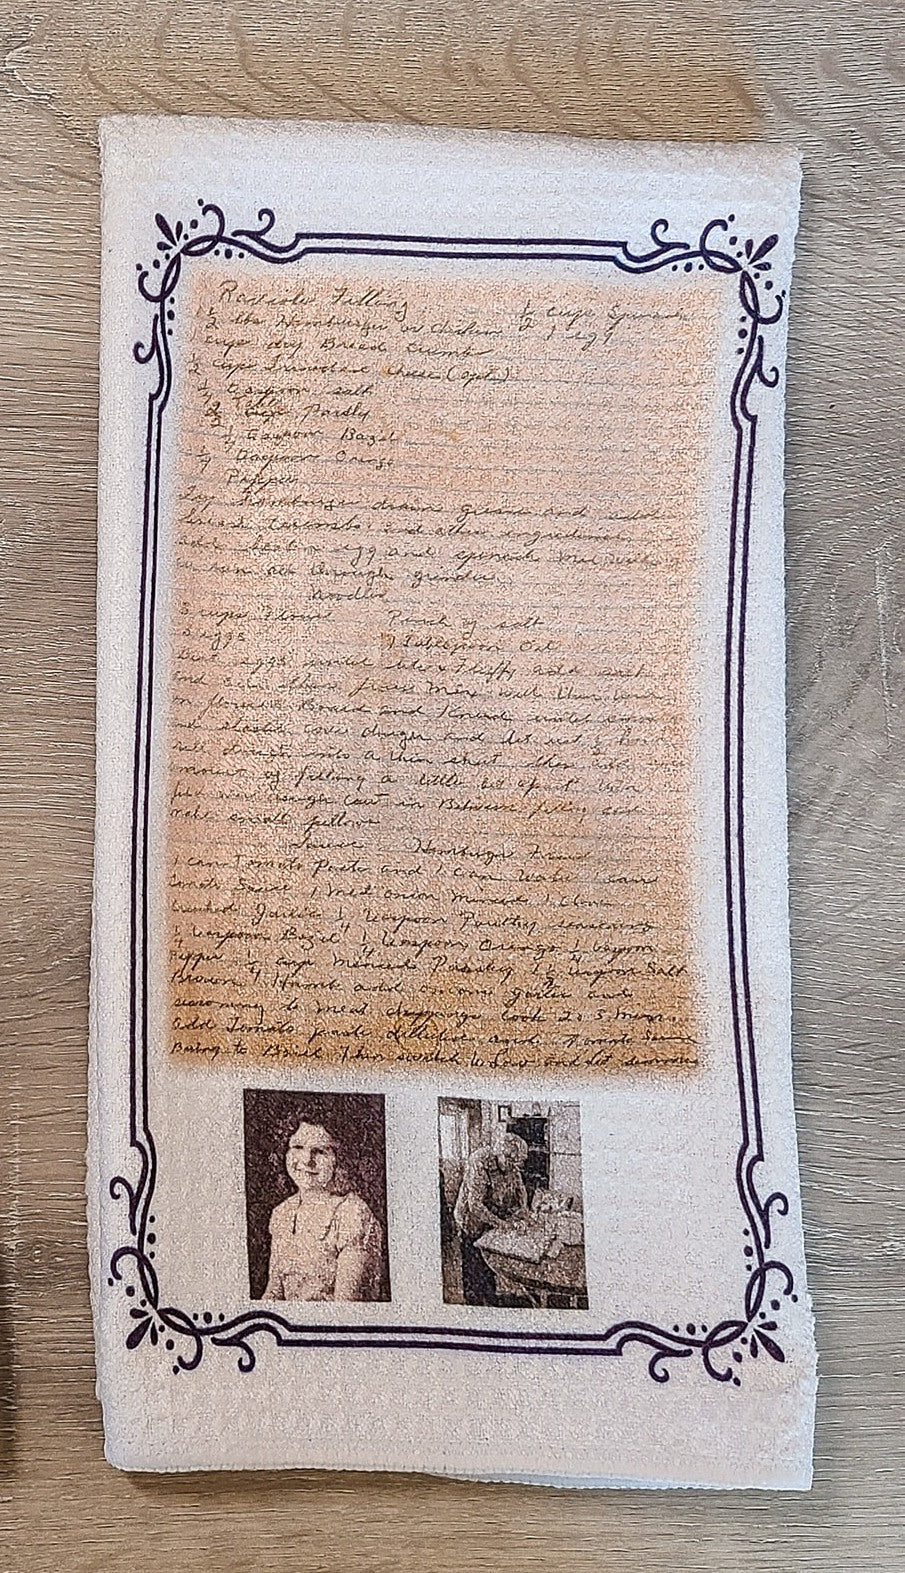 Raviolie Filling ½ cup Spinach
1½ lbs Hamburger or Chicken 1 egg
cup dry Bread crumbs
½ cup Cheese (opt)
½ teaspoon salt
½ cup Parsley
¼ teaspoon Bazel
¼ teaspoon Orengo
Pepper
Fry Hamburger drain grease and add
bread crumbs and other ingredients
add beaten egg and spinach mix well
run all through grinder
Noodles
3 cups Flour Pinch of salt
5 eggs 1 Tablespoon Oil
Beat eggs until Fluffy add salt
and oil then flour Mix well then
on floured Board and Knead until
and let rest ½ hour
roll dough into a thin sheet then add
mount of filling a little bit apart
cut in Between filling and
small pillows
Sauce Hamburger Fried
1 can Tomato Paste and 1 Can Water 1 can
Sauce 1 med onion Minced 1 clove
crushed Garlic ¼ teaspoon Poultry seasoning
¼ teaspoon Bazel ¼ teaspoon Orengo ¼ teaspoon
Pepper ¼ cup Minced Parsley 1½ teaspoon Salt
Brown add onions garlic and
seasoning to meat drippings cook 2 to 3 min.
add Tomato paste and Tomato Sauce
Bring to Boil then switch to Low and let simmer